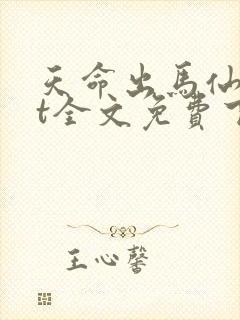 天命出马仙
t全文免費下
王心馨